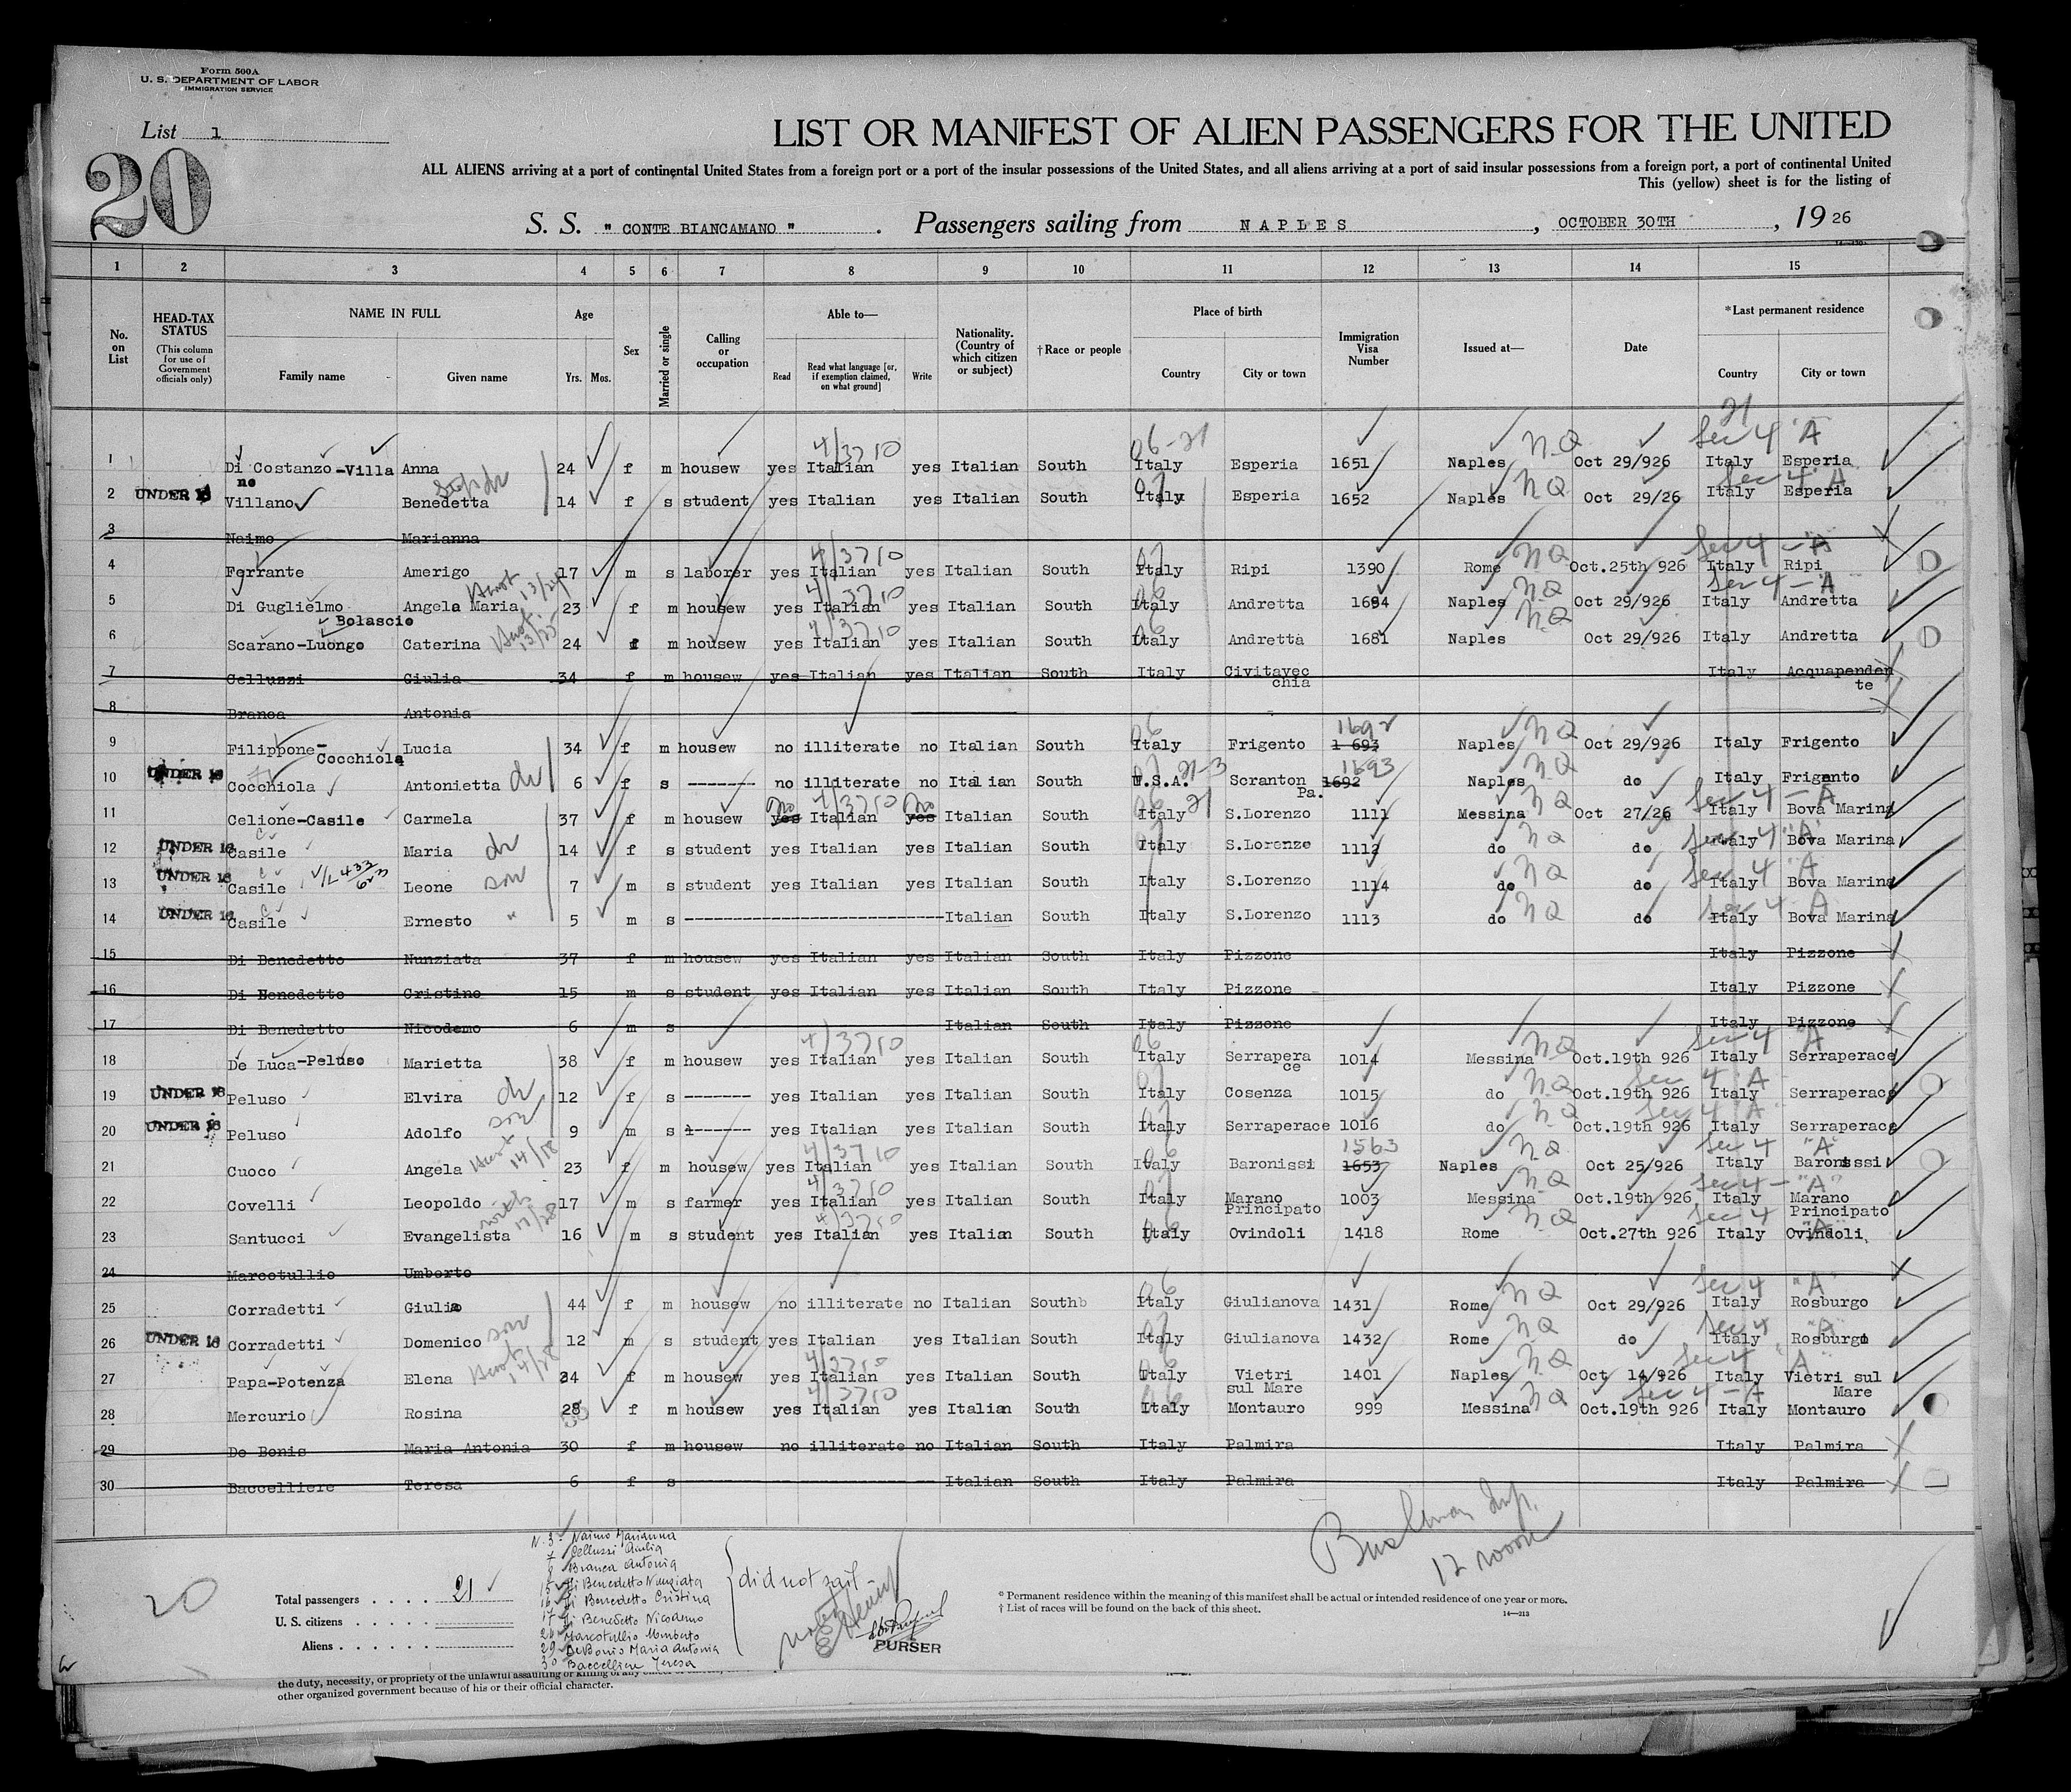 Form 500A
U. S. DEPARTMENT OF LABOR
IMMIGRATION SERVICE
List 1
20
LIST OR MANIFEST OF ALIEN PASSENGERS FOR THE UNITED
ALL ALIENS arriving at a port of continental United States from a foreign port or a port of the insular possessions of the United States, and all aliens arriving at a port of said insular possessions from a foreign port, a port of continental United
This (yellow) sheet is for the listing of
S. S. " CONTE BIANCAMANO " . Passengers sailing from NAPLES , OCTOBER 30TH , 19 26
1 2 3 4 5 6 7 8 9 10 11 12 13 14 15
No. on List
HEAD-TAX STATUS (This column for use of Government officials only)
NAME IN FULL Family name Given name
Age Yrs. Mos.
Sex
Married or single
Calling or occupation
Able to— Read Read what language [or, if exemption claimed, on what ground] Write
Nationality. (Country of which citizen or subject)
†Race or people
Place of birth Country City or town
Immigration Visa Number
Issued at—
Date
*Last permanent residence Country City or town
21
4/3710 06-21 N.Q Sec 4 "A"
1 Di Costanzo-Villa Anna 24 f m housew yes Italian yes Italian South Italy Esperia 1651 Naples Oct 29/926 Italy Esperia
no
2 UNDER 16 Villano Benedetta step dr 14 f s student yes Italian yes Italian South Italy Esperia 1652 Naples NQ Oct 29/26 Italy Esperia
3 Naimo Marianna
4 Ferrante Amerigo 17 m s laborer yes Italian yes Italian South Italy Ripi 1390 Rome NQ Oct.25th 926 Italy Ripi
5 Di Guglielmo Angela Maria 23 f m housew yes Italian yes Italian South Italy Andretta 1684 Naples NQ Oct 29/926 Italy Andretta
Bolascio
6 Scarano-Luongo Caterina 24 f m housew yes Italian yes Italian South Italy Andretta 1681 Naples NQ Oct 29/926 Italy Andretta
7 Celluzzi Giulia 34 f m housew yes Italian yes Italian South Italy Civitavec Italy Acquapenden
chia te
8 Branca Antonia
1692
9 Filippone- Lucia 34 f m housew no illiterate no Italian South Italy Frigento 1 693 Naples NQ Oct 29/926 Italy Frigento
Cocchiola
1693
10 UNDER 16 Cocchiola Antonietta dr 6 f s ------- no illiterate no Italian South U.S.A. Scranton 1692 Naples NQ do Italy Frigento
Pa.
11 Celione-Casile Carmela 37 f m housew yes no Italian yes no Italian South Italy S.Lorenzo 1111 Messina NQ Oct 27/26 Italy Bova Marina
12 UNDER 16 Casile Maria dr 14 f s student yes Italian yes Italian South Italy S.Lorenzo 1112 do NQ do Italy Bova Marina
13 UNDER 16 Casile Leone son 7 m s student yes Italian yes Italian South Italy S.Lorenzo 1114 do NQ do Italy Bova Marina
14 UNDER 16 Casile Ernesto " 5 m s ---------------------- Italian South Italy S.Lorenzo 1113 do NQ do Italy Bova Marina
15 Di Benedetto Nunziata 37 f m housew yes Italian yes Italian South Italy Pizzone Italy Pizzone
16 Di Benedetto Cristino 15 m s student yes Italian yes Italian South Italy Pizzone Italy Pizzone
17 Di Benedetto Nicodemo 6 m s Italian South Italy Pizzone Italy Pizzone
18 De Luca-Peluso Marietta 38 f m housew yes Italian yes Italian South Italy Serrapera 1014 Messina NQ Oct.19th 926 Italy Serraperace
ce
19 UNDER 16 Peluso Elvira dr 12 f s ------- yes Italian yes Italian South Italy Cosenza 1015 do NQ Oct.19th 926 Italy Serraperace
20 UNDER 16 Peluso Adolfo son 9 m s ------ yes Italian yes Italian South Italy Serraperace 1016 do NQ Oct.19th 926 Italy Serraperace
1563
21 Cuoco Angela 23 f m housew yes Italian yes Italian South Italy Baronissi 1653 Naples NQ Oct 25/926 Italy Baronissi
22 Covelli Leopoldo 17 m s farmer yes Italian yes Italian South Italy Marano 1003 Messina NQ Oct.19th 926 Italy Marano
Principato Principato
23 Santucci Evangelista 16 m s student yes Italian yes Italian South Italy Ovindoli 1418 Rome NQ Oct.27th 926 Italy Ovindoli
24 Marcotullio Umberto
25 Corradetti Giulia 44 f m housew no illiterate no Italian South Italy Giulianova 1431 Rome NQ Oct 29/926 Italy Rosburgo
26 UNDER 16 Corradetti Domenico son 12 m s student yes Italian yes Italian South Italy Giulianova 1432 Rome NQ do Italy Rosburgo
27 Papa-Potenza Elena 24 f m housew yes Italian yes Italian South Italy Vietri 1401 Naples NQ Oct 14/926 Italy Vietri sul
sul Mare Mare
28 Mercurio Rosina 28 f m housew yes Italian yes Italian South Italy Montauro 999 Messina NQ Oct.19th 926 Italy Montauro
29 De Bonis Maria Antonia 30 f m housew no illiterate no Italian South Italy Palmira Italy Palmira
30 Baccelliere Teresa 6 f s Italian South Italy Palmira Italy Palmira
20
Total passengers . . . . 21
U. S. citizens . . . . .
Aliens . . . . . .
N. 3 Naimo Marianna
7 Celluzzi Giulia
8 Branca Antonia
15 Di Benedetto Nunziata
16 Di Benedetto Cristina
17 Di Benedetto Nicodemo
24 Marcotullio Umberto
29 De Bonis Maria Antonia
30 Baccelliere Teresa
did not sail
PURSER
12 room
* Permanent residence within the meaning of this manifest shall be actual or intended residence of one year or more.
† List of races will be found on the back of this sheet.
14—213
the duty, necessity, or propriety of the unlawful assaulting or killing of any
other organized government because of his or their official character.